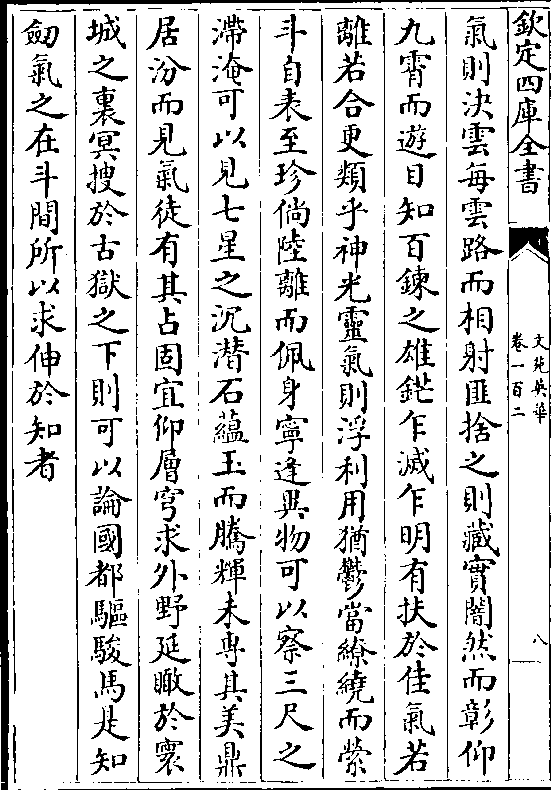 欽定四庫全書
文苑英華
卷一百二
八
氣則決雲每雲路而相射匪捨之則藏實闇然而彰仰
九霄而遊目知百鍊之雄鋩乍滅乍明有扶於佳氣若
離若合更類乎神光靈氣則浮利用猶鬱當繚繞而縈
斗自表至珍倘陸離而佩身寧逢異物可以察三尺之
滯淹可以見七星之沉潛石蘊玉而騰輝未專其美鼎
居汾而見氣徒有其占固宜仰層穹求外野延瞰於寰
城之裏冥搜於古獄之下則可以論國都驅駿馬是知
劒氣之在斗間所以求伸於知者